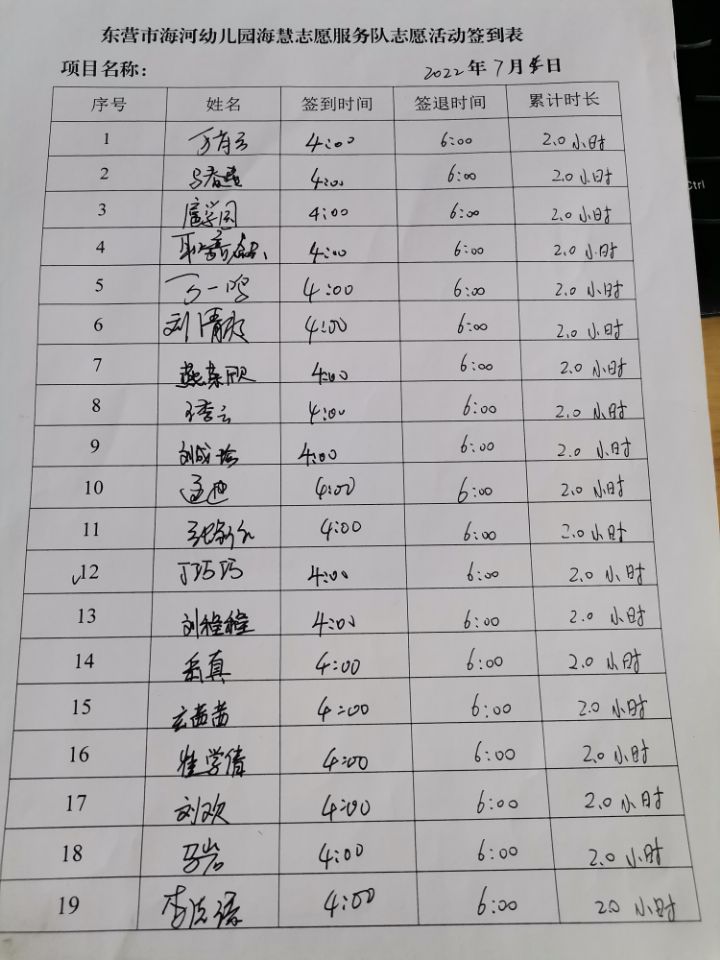 东营市海河幼儿园海慧志愿服务队志愿活动签到表
项目名称： 2022年7月 日
序号 姓名 签到时间 签退时间 累计时长
1 4:00 6:00 2.0小时
2 马春霞 4:00 6:00 2.0小时
3 4:00 6:00 2.0小时
4 4:00 6:00 2.0小时
5 万一鸣 4:00 6:00 2.0小时
6 刘清 4:00 6:00 2.0小时
7 燕荣欣 4:00 6:00 2.0小时
8 王秀云 4:00 6:00 2.0小时
9 刘成珍 4:00 6:00 2.0小时
10 孟迪 4:00 6:00 2.0小时
11 4:00 6:00 2.0小时
12 丁巧巧 4:00 6:00 2.0小时
13 刘程程 4:00 6:00 2.0小时
14 岳真 4:00 6:00 2.0小时
15 玄茜茜 4:00 6:00 2.0小时
16 崔学倩 4:00 6:00 2.0小时
17 刘欢 4:00 6:00 2.0小时
18 马岩 4:00 6:00 2.0小时
19 4:00 6:00 2.0小时
Ctrl